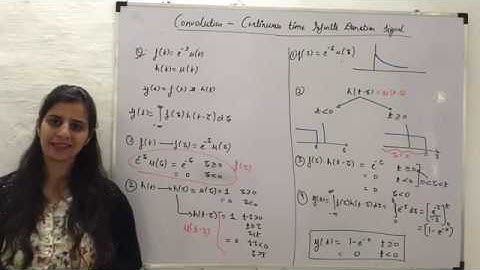 Convolution - Continuous time Infinite Duration Signal
Q. f(t) = e^-t u(t)
h(t) = u(t)
y(t) = f(t) * h(t)
y(t) = ∫ f(τ) h(t-τ) dτ
① f(t) → f(τ) = e^-τ u(τ)
e^-τ u(τ) = e^-τ τ≥0
= 0 τ<0
② h(t) → h(τ) = u(τ) = 1 τ≥0
= 0 τ<0
→ h(t-τ) = 1 t-τ≥0
t≥τ
τ≤t
= 0 t-τ<0
u(t-τ)
① f(τ) = e^-τ u(τ)
②
h(t-τ) = u(t-τ)
t<0 t≥0
③ f(τ) h(t-τ) = e^-τ t≥0 0≤τ≤t
= 0 t<0
④ y(t) = ∫ f(τ) h(t-τ) dτ = ∫ e^-τ dτ = [e^-τ/-1]
= [1-e^-t]
y(t) = 1-e^-t t≥0
= 0 t<0